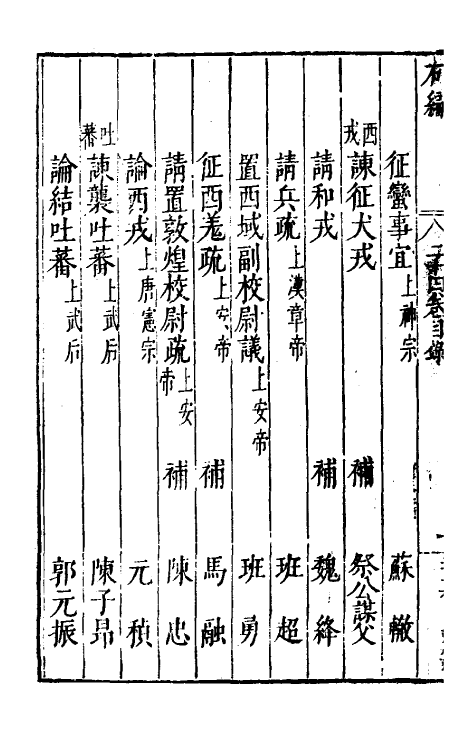 右編
二十四卷目錄
征蠻事宜 上神宗 蘇轍
西戎 諫征犬戎 補 祭公謀父
請和戎 補 魏絳
請兵疏 上漢章帝 班超
置西域副校尉議 上安帝 班勇
征西羌疏 上安帝 補 馬融
請置敦煌校尉疏 上安帝 補 陳忠
論西戎 上唐憲宗 元稹
吐蕃 諫襲吐蕃 上武后 陳子昂
論結吐蕃 上武后 郭元振